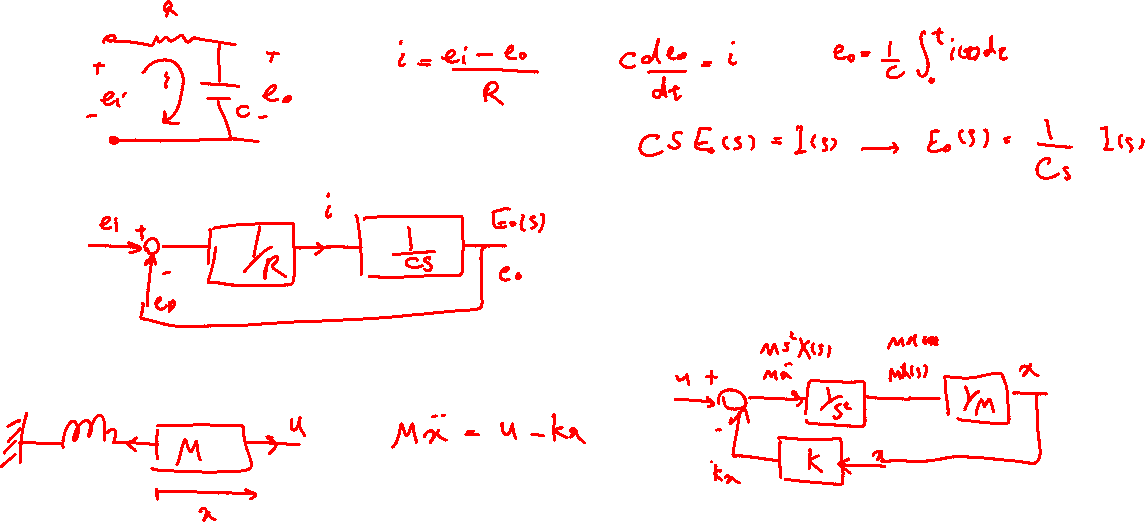 R
+
ei
-
i
C
+
eo
-
i = ei - eo / R
C deo/dt = i
eo = 1/C ∫₀ᵗ i(t)dt
CS Eo(s) = I(s) → Eo(s) = 1/Cs I(s)
ei
+
-
eo
1/R
i
1/CS
Eo(s)
eo
M
u
x
Mẍ = u - kx
u
+
-
Ms²X(s)
Mẍ
1/s²
MX(s)
1/M
x
K
x
kx